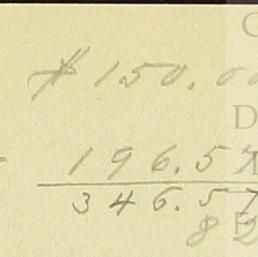 $150.00
196.57
346.57
82